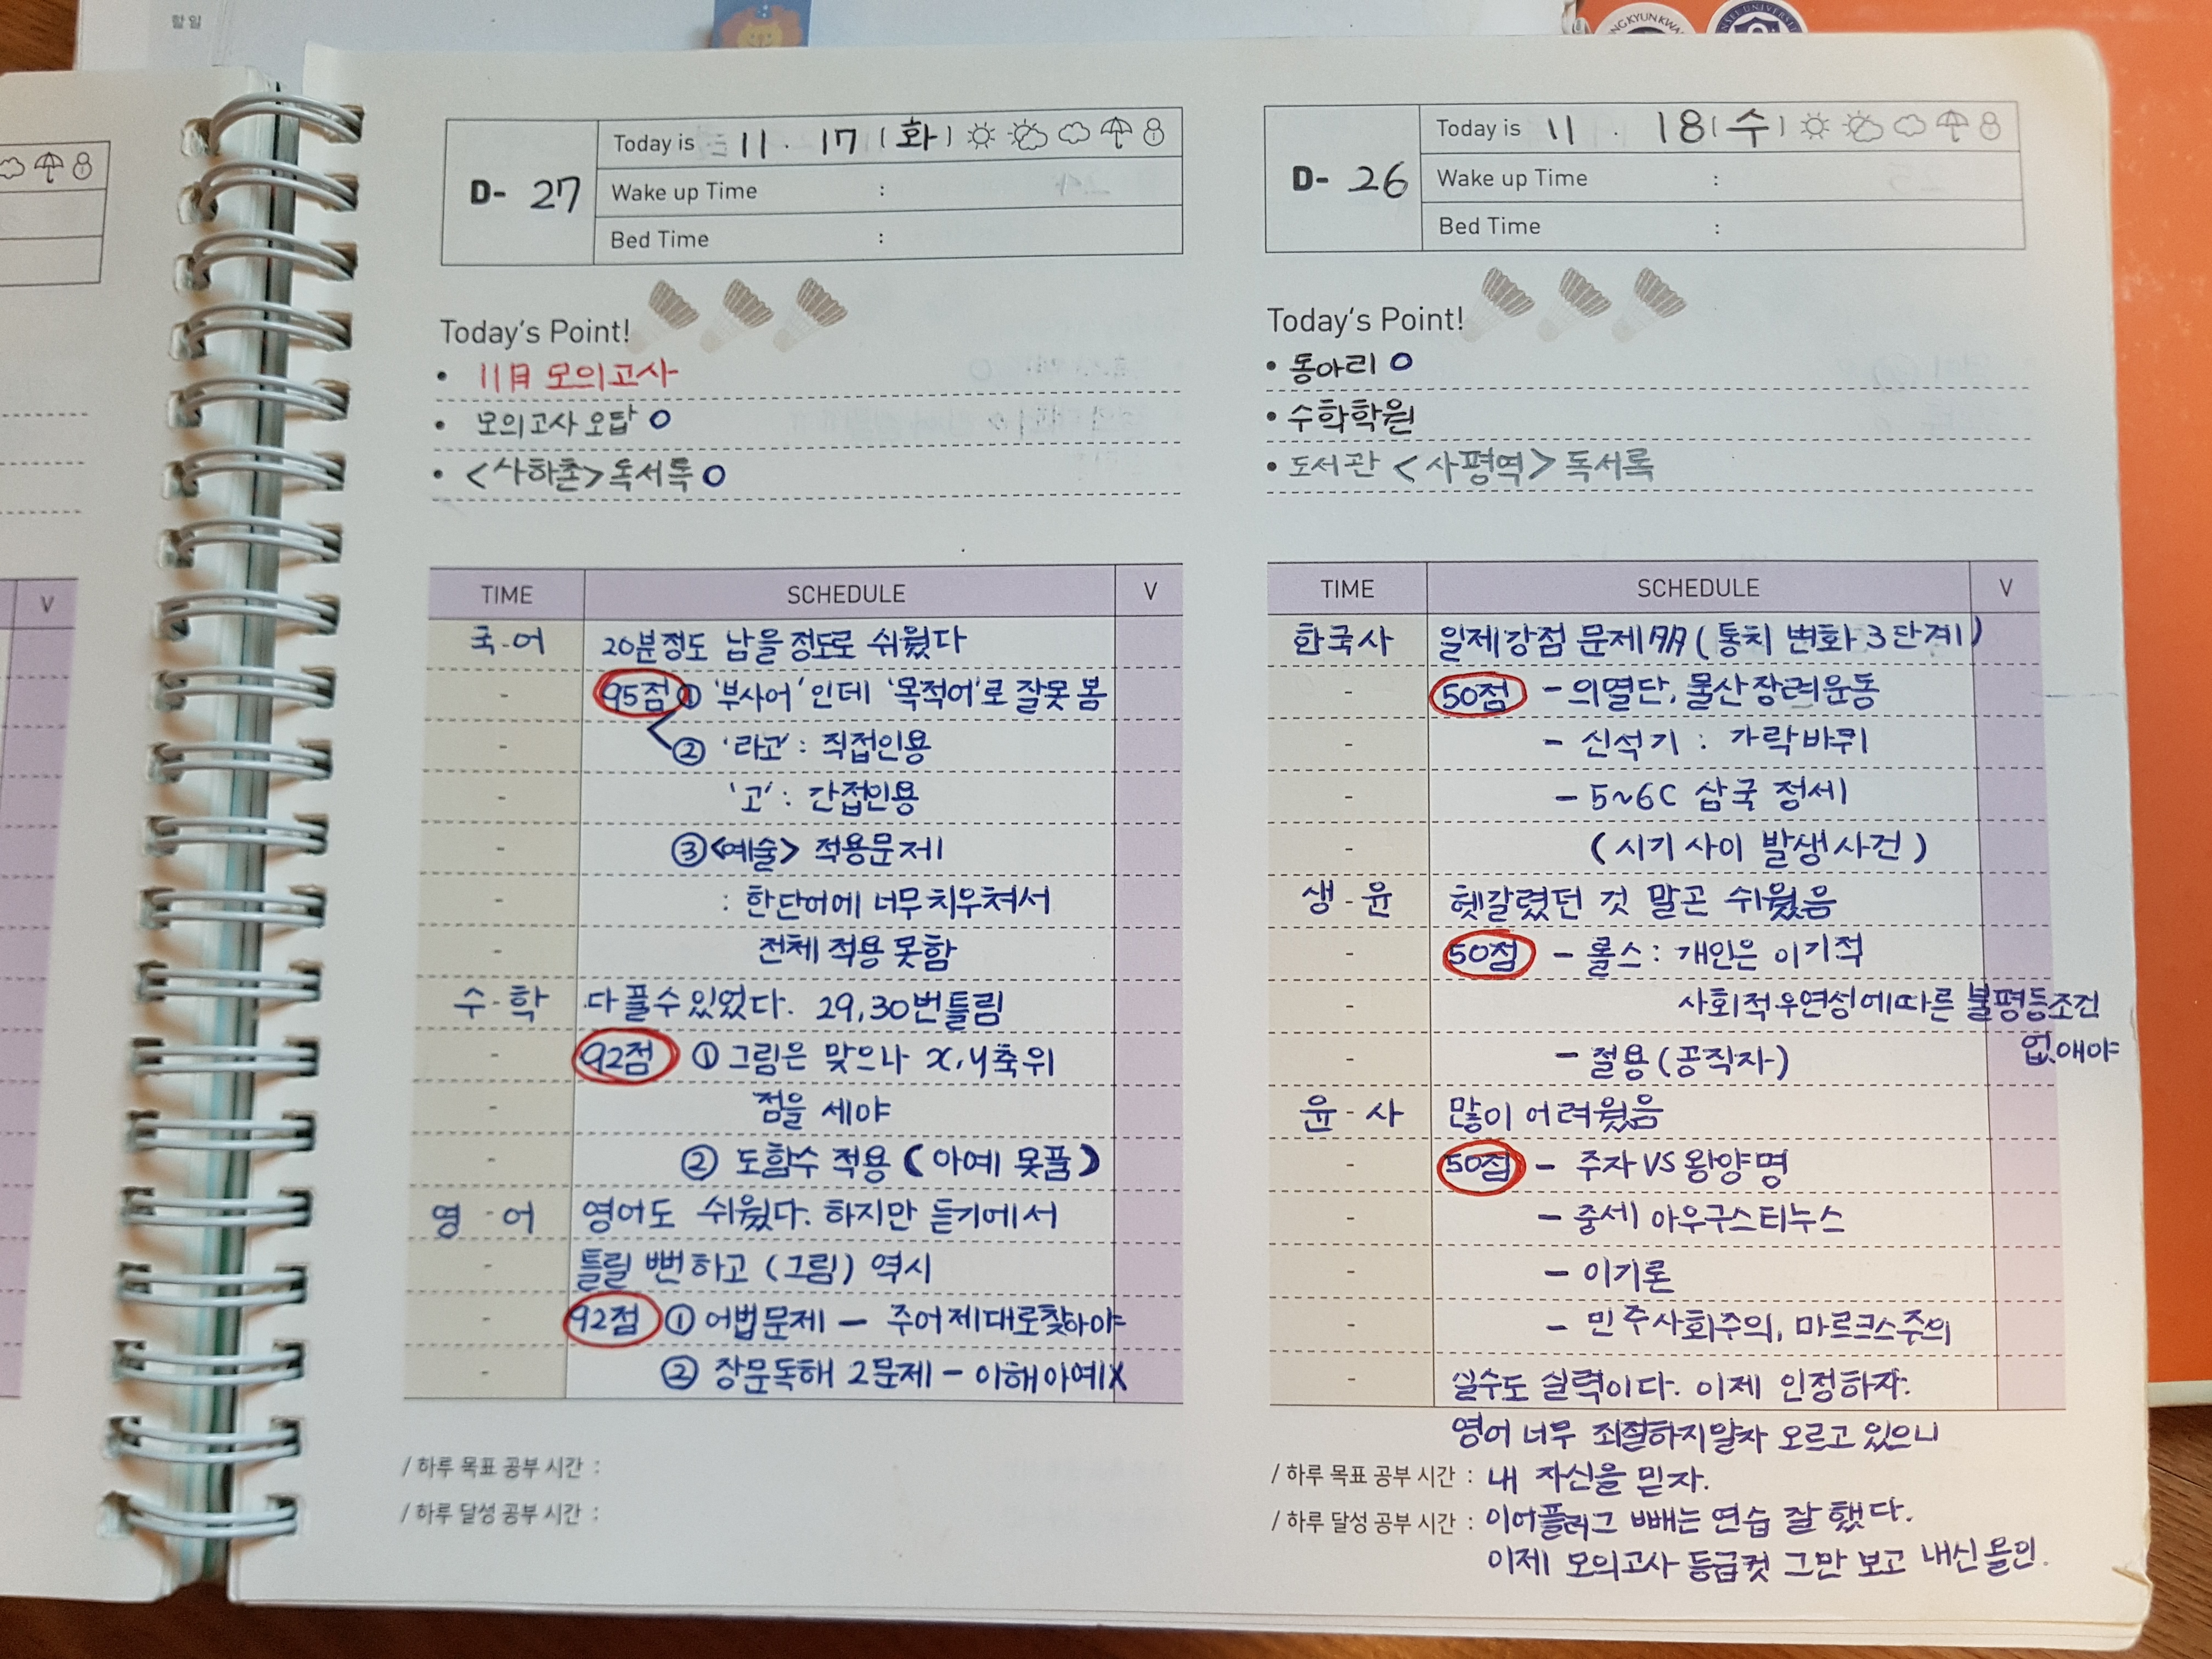 할 일
NG KYUN KWA
NSEI UNIVERSI
V
D- 27
Today is 11 . 17 (화)
Wake up Time :
Bed Time :
Today's Point!
• 11月 모의고사
• 모의고사 오답 O
• <사하촌> 독서록 O
TIME SCHEDULE V
국-어 20분정도 남을 정도로 쉬웠다
- 95점 ① '부사어'인데 '목적어'로 잘못 봄
- ② '라고' : 직접인용
- '고' : 간접인용
- ③ <예술> 적용문제
- : 한단어에 너무 치우쳐서
- 전체 적용 못함
수-학 다 풀수 있었다. 29,30번틀림
- 92점 ① 그림은 맞으나 x,y축위
- 점을 세야
- ② 도함수 적용 (아예 못품)
영-어 영어도 쉬웠다. 하지만 듣기에서
- 틀릴 뻔하고 (그림) 역시
- 92점 ① 어법문제 - 주어제대로찾아야
- ② 장문독해 2문제 - 이해아예X
/ 하루 목표 공부 시간 :
/ 하루 달성 공부 시간 :
D- 26
Today is 11 . 18 (수)
Wake up Time :
Bed Time :
Today's Point!
• 동아리 O
• 수학학원
• 도서관 <사평역> 독서록
TIME SCHEDULE V
한국사 일제강점 문제多 (통치 변화 3단계)
- 50점 - 의열단, 물산장려운동
- - 신석기 : 가락바퀴
- - 5~6C 삼국 정세
- (시기 사이 발생사건)
생-윤 헷갈렸던 것 말곤 쉬웠음
- 50점 - 롤스 : 개인은 이기적
- 사회적우연성에따른 불평등조건
없애야
- - 절용 (공직자)
윤-사 많이 어려웠음
- 50점 - 주자 VS 왕양명
- - 중세 아우구스티누스
- - 이기론
- - 민주사회주의, 마르크스주의
- 실수도 실력이다. 이제 인정하자.
영어 너무 좌절하지말자 오르고 있으니
/ 하루 목표 공부 시간 : 내 자신을 믿자.
/ 하루 달성 공부 시간 : 이어플러그 빼는 연습 잘 했다.
이제 모의고사 등급컷 그만 보고 내신 몰입.